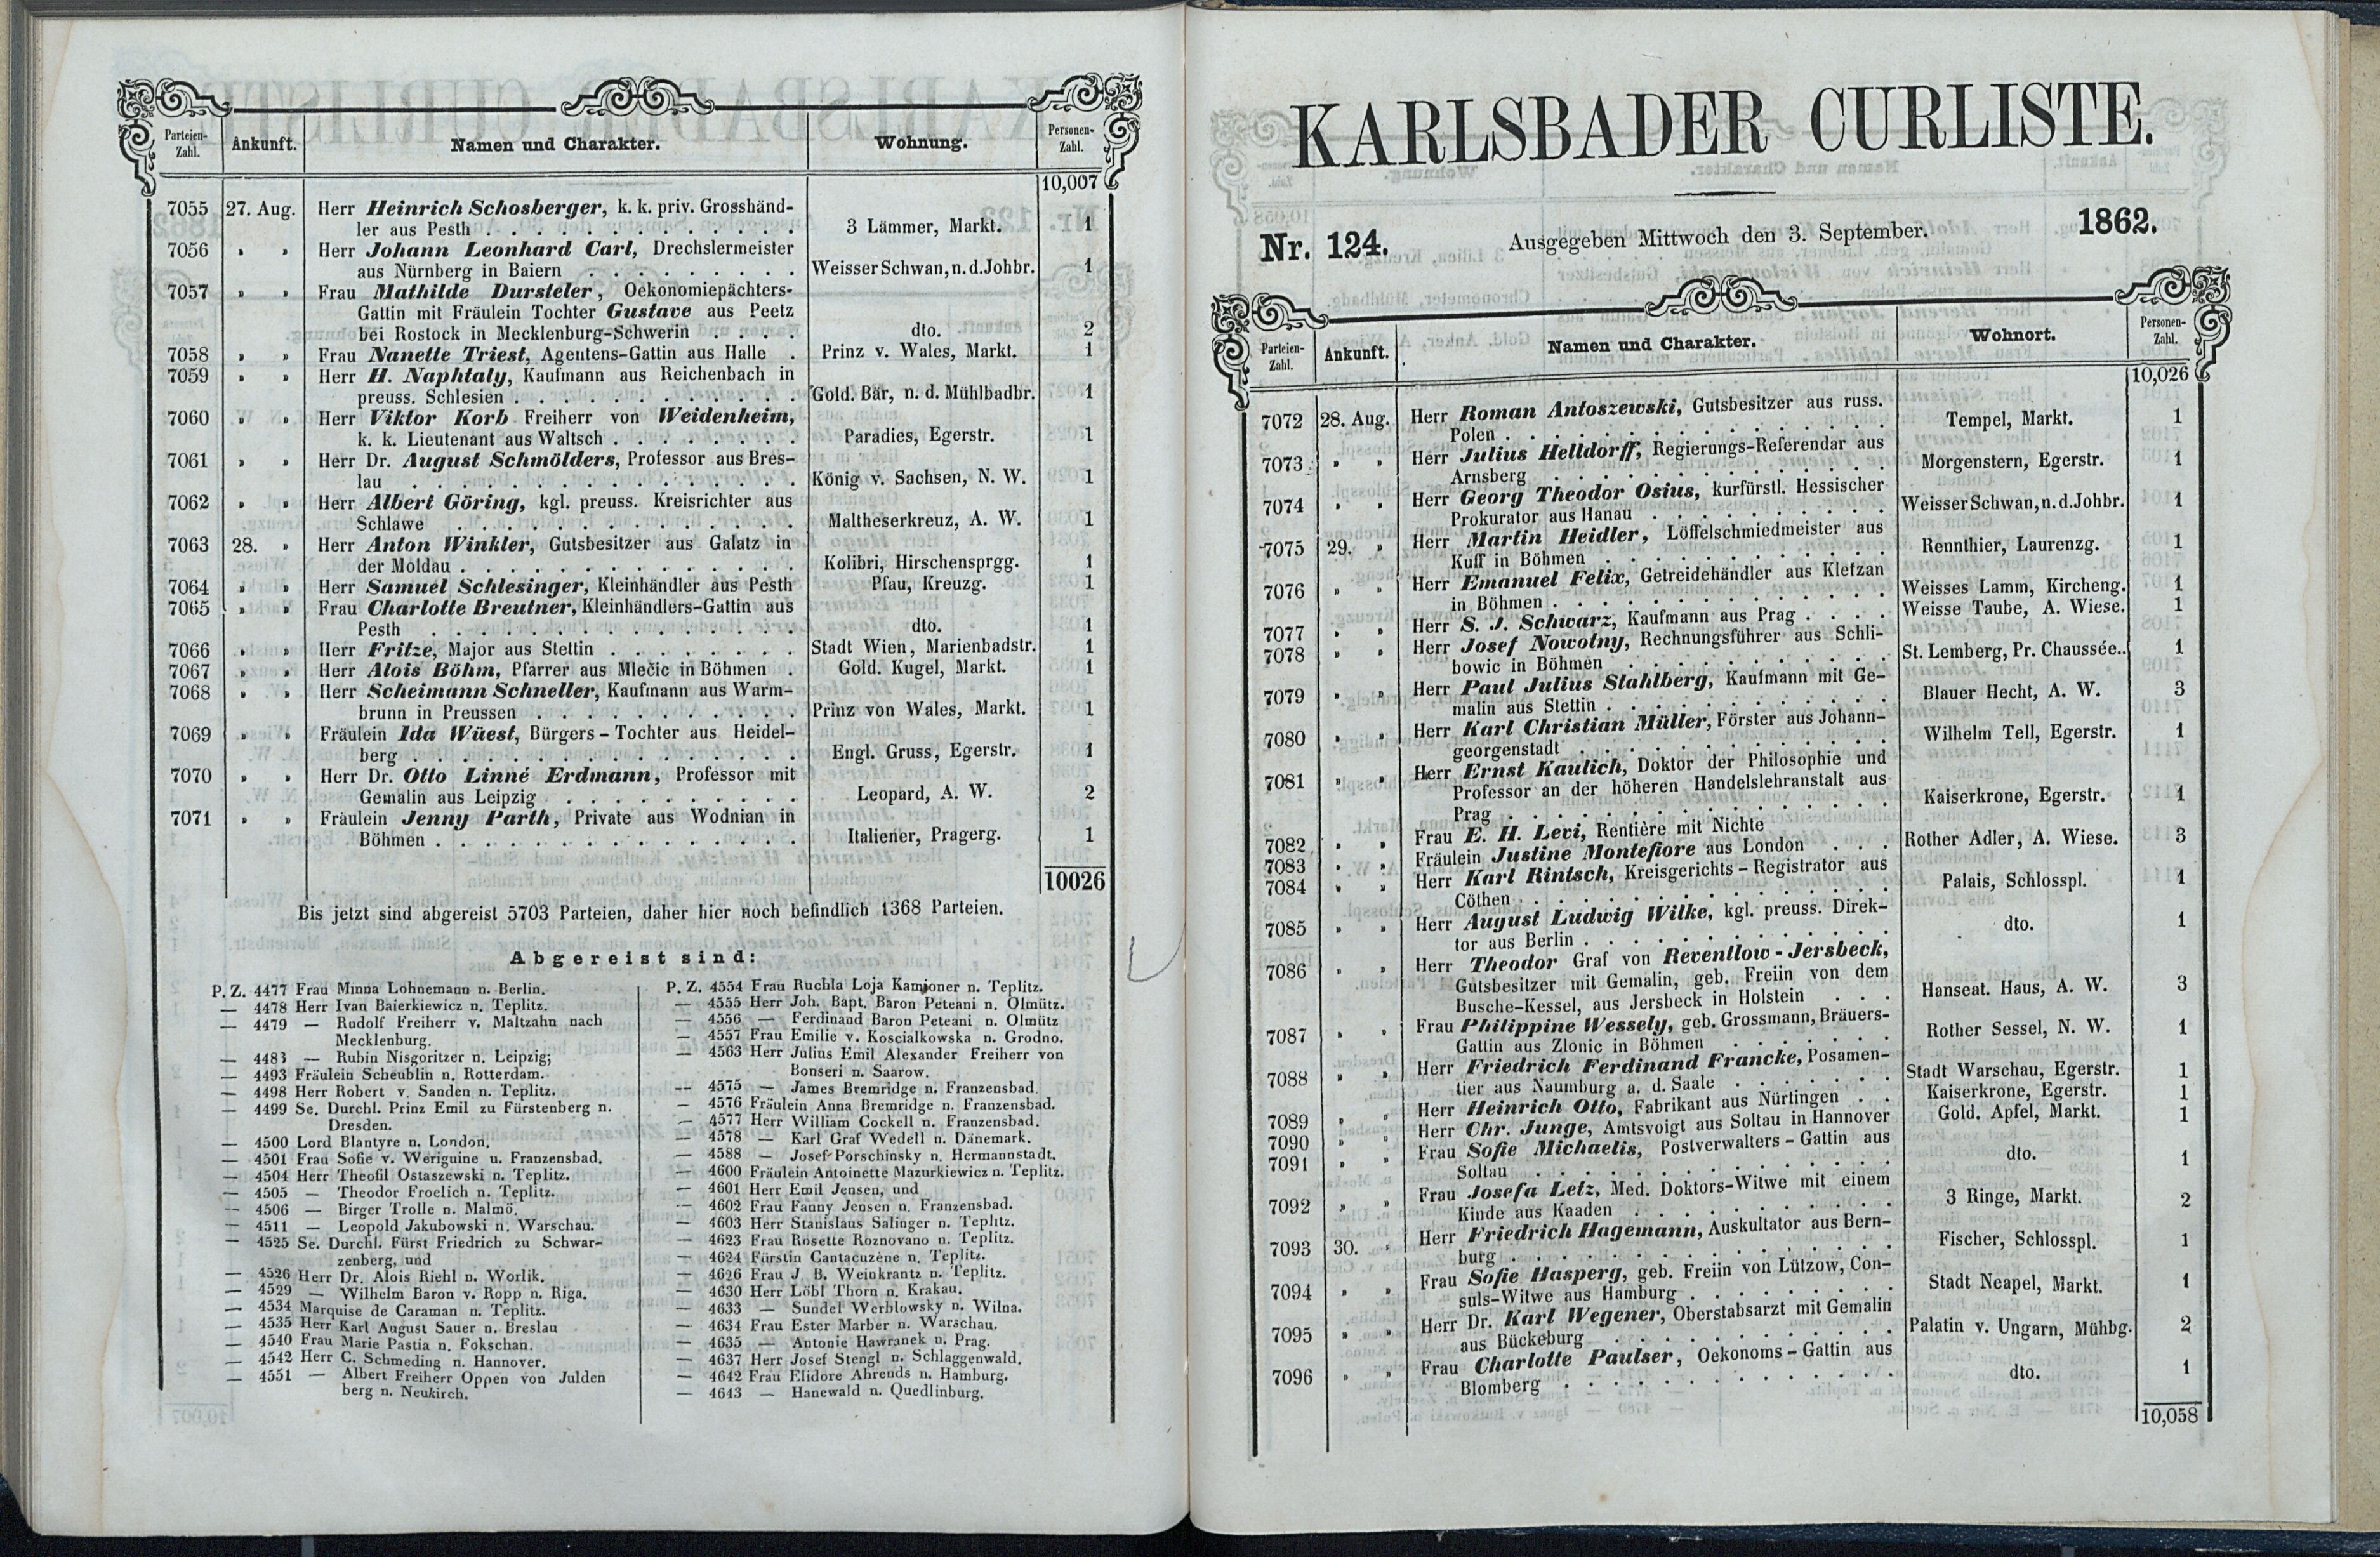 Parteien-Zahl. Ankunft. Namen und Charakter. Wohnung. Personen-Zahl.
10,007
7055 27. Aug. Herr Heinrich Schosberger, k. k. priv. Grosshänd-
ler aus Pesth . . . 3 Lämmer, Markt. 1
7056 » » Herr Johann Leonhard Carl, Drechslermeister
aus Nürnberg in Baiern . . . Weisser Schwan, n. d. Johbr. 1
7057 » » Frau Mathilde Dursteler, Oekonomiepächters-
Gattin mit Fräulein Tochter Gustave aus Peetz
bei Rostock in Mecklenburg-Schwerin . . . dto. 2
7058 » » Frau Nanette Triest, Agentens-Gattin aus Halle . Prinz v. Wales, Markt. 1
7059 » » Herr H. Naphtaly, Kaufmann aus Reichenbach in
preuss. Schlesien . . . Gold. Bär, n. d. Mühlbadbr. 1
7060 » » Herr Viktor Korb Freiherr von Weidenheim,
k. k. Lieutenant aus Waltsch . . . Paradies, Egerstr. 1
7061 » » Herr Dr. August Schmölders, Professor aus Bres-
lau . . . König v. Sachsen, N. W. 1
7062 » » Herr Albert Göring, kgl. preuss. Kreisrichter aus
Schlawe . . . Maltheserkreuz, A. W. 1
7063 28. » Herr Anton Winkler, Gutsbesitzer aus Galatz in
der Moldau . . . Kolibri, Hirschensprgg. 1
7064 » » Herr Samuel Schlesinger, Kleinhändler aus Pesth Pfau, Kreuzg. 1
7065 » » Frau Charlotte Breutner, Kleinhändlers-Gattin aus
Pesth . . . dto. 1
7066 » » Herr Fritze, Major aus Stettin . . . Stadt Wien, Marienbadstr. 1
7067 » » Herr Alois Böhm, Pfarrer aus Mlečic in Böhmen . Gold. Kugel, Markt. 1
7068 » » Herr Scheimann Schneller, Kaufmann aus Warm-
brunn in Preussen . . . Prinz von Wales, Markt. 1
7069 » » Fräulein Ida Wüest, Bürgers-Tochter aus Heidel-
berg . . . Engl. Gruss, Egerstr. 1
7070 » » Herr Dr. Otto Linné Erdmann, Professor mit
Gemalin aus Leipzig . . . Leopard, A. W. 2
7071 » » Fräulein Jenny Parth, Private aus Wodnian in
Böhmen . . . Italiener, Pragerg. 1
10026
Bis jetzt sind abgereist 5703 Parteien, daher hier noch befindlich 1368 Parteien.
Abgereist sind:
P. Z. 4477 Frau Minna Lohnemann n. Berlin.
— 4478 Herr Ivan Baierkiewicz n. Teplitz.
— 4479 — Rudolf Freiherr v. Maltzahn nach
Mecklenburg.
— 4483 — Rubin Nisgoritzer n. Leipzig;
— 4493 Fräulein Scheublin n. Rotterdam.
— 4498 Herr Robert v. Sanden n. Teplitz.
— 4499 Se. Durchl. Prinz Emil zu Fürstenberg n.
Dresden.
— 4500 Lord Blantyre n. London.
— 4501 Frau Sofie v. Weriguine u. Franzensbad.
— 4504 Herr Theofil Ostaszewski n. Teplitz.
— 4505 — Theodor Froelich n. Teplitz.
— 4506 — Birger Trolle n. Malmö.
— 4511 — Leopold Jakubowski n. Warschau.
— 4525 Se. Durchl. Fürst Friedrich zu Schwar-
zenberg, und
— 4526 Herr Dr. Alois Riehl n. Worlik.
— 4529 — Wilhelm Baron v. Ropp n. Riga.
— 4534 Marquise de Caraman n. Teplitz.
— 4535 Herr Karl August Sauer n. Breslau
— 4540 Frau Marie Pastia n. Fokschan.
— 4542 Herr C. Schmeding n. Hannover.
— 4551 — Albert Freiherr Oppen von Julden
berg n. Neukirch.
P. Z. 4554 Frau Ruchla Loja Kamjoner n. Teplitz.
— 4555 Herr Joh. Bapt. Baron Peteani n. Olmütz.
— 4556 — Ferdinand Baron Peteani n. Olmütz
— 4557 Frau Emilie v. Koscialkowska n. Grodno.
— 4563 Herr Julius Emil Alexander Freiherr von
Bonseri n. Saarow.
— 4575 — James Bremridge n. Franzensbad.
— 4576 Fräulein Anna Bremridge n. Franzensbad.
— 4577 Herr William Cockell n. Franzensbad.
— 4578 — Karl Graf Wedell n. Dänemark.
— 4588 — Josef Porschinsky n. Hermannstadt.
— 4600 Fräulein Antoinette Mazurkiewicz n. Teplitz.
— 4601 Herr Emil Jensen, und
— 4602 Frau Fanny Jensen n. Franzensbad.
— 4603 Herr Stanislaus Salinger n. Teplitz.
— 4623 Frau Rosette Roznovano n. Teplitz.
— 4624 Fürstin Cantacuzène n. Teplitz.
— 4626 Frau J. B. Weinkrantz n. Teplitz.
— 4630 Herr Löbl Thorn n. Krakau.
— 4633 — Sundel Werblowsky n. Wilna.
— 4634 Frau Ester Marber n. Warschau.
— 4635 — Antonie Hawranek n. Prag.
— 4637 Herr Josef Stengl n. Schlaggenwald.
— 4642 Frau Elidore Ahrends n. Hamburg.
— 4643 — Hanewald n. Quedlinburg.
KARLSBADER CURLISTE.
Nr. 124. Ausgegeben Mittwoch den 3. September. 1862.
Parteien-Zahl. Ankunft. Namen und Charakter. Wohnort. Personen-Zahl.
10,026
7072 28. Aug. Herr Roman Antoszewski, Gutsbesitzer aus russ.
Polen . . . Tempel, Markt. 1
7073 » » Herr Julius Helldorff, Regierungs-Referendar aus
Arnsberg . . . Morgenstern, Egerstr. 1
7074 » » Herr Georg Theodor Osius, kurfürstl. Hessischer
Prokurator aus Hanau . . . Weisser Schwan, n. d. Johbr. 1
7075 29. » Herr Martin Heidler, Löffelschmiedmeister aus
Kuff in Böhmen . . . Rennthier, Laurenzg. 1
7076 » » Herr Emanuel Felix, Getreidehändler aus Kletzan
in Böhmen . . . Weisses Lamm, Kircheng. 1
7077 » » Herr S. J. Schwarz, Kaufmann aus Prag . . . Weisse Taube, A. Wiese. 1
7078 » » Herr Josef Nowotny, Rechnungsführer aus Schli-
bowic in Böhmen . . . St. Lemberg, Pr. Chaussée.. 1
7079 » » Herr Paul Julius Stahlberg, Kaufmann mit Ge-
malin aus Stettin . . . Blauer Hecht, A. W. 3
7080 » » Herr Karl Christian Müller, Förster aus Johann-
georgenstadt . . . Wilhelm Tell, Egerstr. 1
7081 » » Herr Ernst Kaulich, Doktor der Philosophie und
Professor an der höheren Handelslehranstalt aus
Prag . . . Kaiserkrone, Egerstr. 1
7082 » » Frau E. H. Levi, Rentière mit Nichte
7083 » » Fräulein Justine Montefiore aus London . . . Rother Adler, A. Wiese. 3
7084 » » Herr Karl Rintsch, Kreisgerichts-Registrator aus
Cöthen . . . Palais, Schlosspl. 1
7085 » » Herr August Ludwig Wilke, kgl. preuss. Direk-
tor aus Berlin . . . dto. 1
7086 » » Herr Theodor Graf von Reventlow-Jersbeck,
Gutsbesitzer mit Gemalin, geb. Freiin von dem
Busche-Kessel, aus Jersbeck in Holstein . . . Hanseat. Haus, A. W. 3
7087 » » Frau Philippine Wessely, geb. Grossmann, Bräuers-
Gattin aus Zlonic in Böhmen . . . Rother Sessel, N. W. 1
7088 » » Herr Friedrich Ferdinand Francke, Posamen-
tier aus Naumburg a. d. Saale . . . Stadt Warschau, Egerstr. 1
7089 » » Herr Heinrich Otto, Fabrikant aus Nürtingen . . Kaiserkrone, Egerstr. 1
7090 » » Herr Chr. Junge, Amtsvoigt aus Soltau in Hannover Gold. Apfel, Markt. 1
7091 » » Frau Sofie Michaelis, Postverwalters-Gattin aus
Soltau . . . dto. 1
7092 » » Frau Josefa Letz, Med. Doktors-Witwe mit einem
Kinde aus Kaaden . . . 3 Ringe, Markt. 2
7093 30. » Herr Friedrich Hagemann, Auskultator aus Bern-
burg . . . Fischer, Schlosspl. 1
7094 » » Frau Sofie Hasperg, geb. Freiin von Lützow, Con-
suls-Witwe aus Hamburg . . . Stadt Neapel, Markt. 1
7095 » » Herr Dr. Karl Wegener, Oberstabsarzt mit Gemalin
aus Bückeburg . . . Palatin v. Ungarn, Mühbg. 2
7096 » » Frau Charlotte Paulser, Oekonoms-Gattin aus
Blomberg . . . dto. 1
10,058